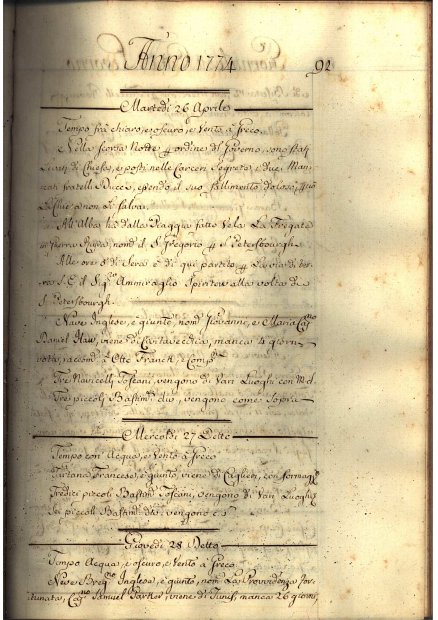 Anno 1774
92
Martedì 26 Aprile
Tempo frà chiaro, e oscuro, e Vento à Greco
Nella scorsa Notte ordine del Governo, sono stati
Levati di Chiesa, e posti nelle Carceri Segrete, i due
fratelli Pucci, il suo fallimento doloso,
Chiesa non li salva.
All'Alba hà dalla Piaggia fatto Vela La Fregata
Guerra Russa, nomᵗᵃ S. Gregorio S. Petersbourgh
Alle ore 8 di Sera è di qui partito La via di Ter-
ra S. E. il Sigʳᵉ Ammiraglio Spiritow alla volta di
S. Petersbourgh.
Nave Inglese, è giunta, nomᵗᵃ Giovanni, e Maria Capⁿᵒ
Daniel Haw, viene di Civitavecchia, manca 4 giorni
vota, raccomᵗᵃ à Otto Franck, e Compⁱ
Tre Navicelli Toscani, vengono di Vari Luoghi con
Tre piccoli Bastimᵗⁱ dⁱ, vengono come sopra
Mercoldì 27 Detto
Tempo con Acqua, e Vento à Greco
Tartana Francese, è giunta, viene di Caglieri, con formagᵒ
Tredici piccoli Bastimᵗⁱ Toscani, vengono di Vari Luoghi
Sei piccoli Bastimᵗⁱ dᵗⁱ, vengono c. s.
Giovedì 28 Detto
Tempo Acqua, e oscuro, e Vento à Greco
Nave Inglesa, è giunta, nomᵗᵃ La Providenza For-
tunata, Capⁿᵒ Samuel viene di Tunis, manca 26 giorni,